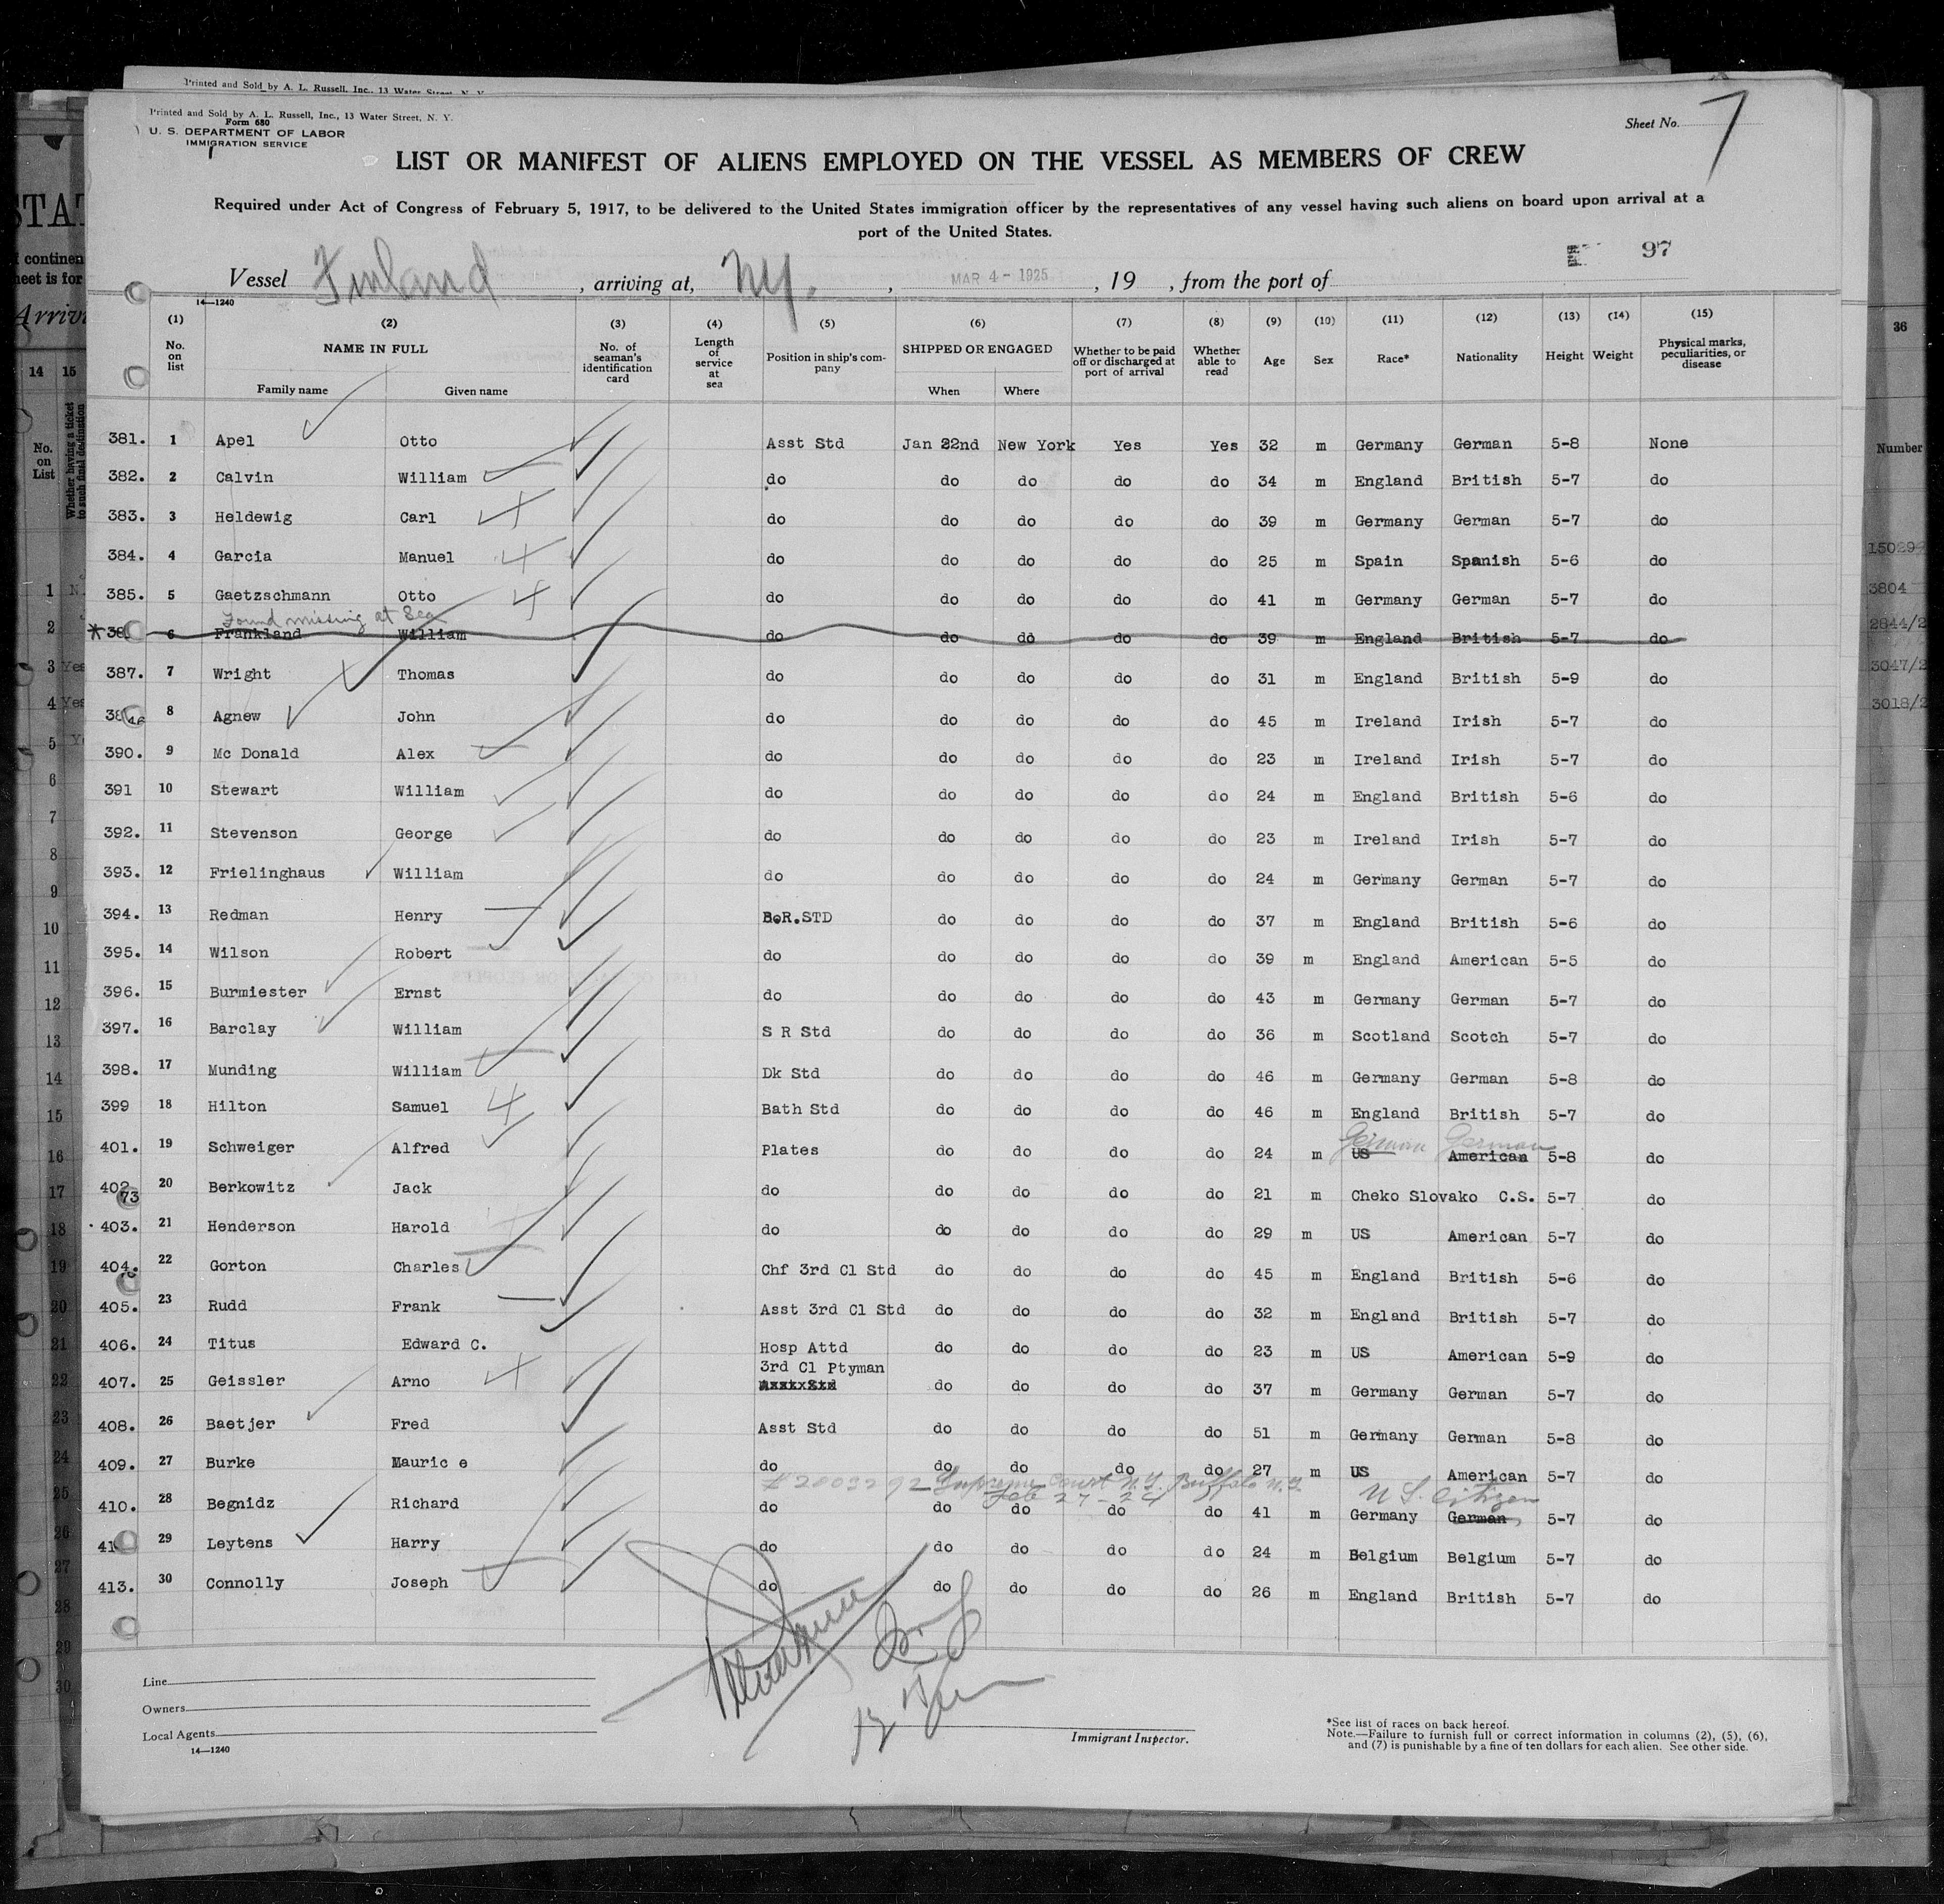 Printed and Sold by A. L. Russell, Inc., 13 Water Street, N. Y.
Printed and Sold by A. L. Russell, Inc., 13 Water Street, N. Y.
Form 680
U. S. DEPARTMENT OF LABOR
IMMIGRATION SERVICE
Sheet No. 7
LIST OR MANIFEST OF ALIENS EMPLOYED ON THE VESSEL AS MEMBERS OF CREW
Required under Act of Congress of February 5, 1917, to be delivered to the United States immigration officer by the representatives of any vessel having such aliens on board upon arrival at a
port of the United States.
97
Vessel Finland, arriving at, N.Y., MAR 4 - 1925, 19 , from the port of
14-1240
(1) (2) (3) (4) (5) (6) (7) (8) (9) (10) (11) (12) (13) (14) (15)
No. on list NAME IN FULL Family name Given name No. of seaman's identification card Length of service at sea Position in ship's company SHIPPED OR ENGAGED When Where Whether to be paid off or discharged at port of arrival Whether able to read Age Sex Race* Nationality Height Weight Physical marks, peculiarities, or disease
381. 1 Apel Otto Asst Std Jan 22nd New York Yes Yes 32 m Germany German 5-8 None
382. 2 Calvin William do do do do do 34 m England British 5-7 do
383. 3 Heldewig Carl do do do do do 39 m Germany German 5-7 do
384. 4 Garcia Manuel do do do do do 25 m Spain Spanish 5-6 do
385. 5 Gaetzschmann Otto do do do do do 41 m Germany German 5-7 do
Found missing at Sea
* 38 6 Frankland William do do do do do 39 m England British 5-7 do
387. 7 Wright Thomas do do do do do 31 m England British 5-9 do
38 8 Agnew John do do do do do 45 m Ireland Irish 5-7 do
390. 9 Mc Donald Alex do do do do do 23 m Ireland Irish 5-7 do
391 10 Stewart William do do do do do 24 m England British 5-6 do
392. 11 Stevenson George do do do do do 23 m Ireland Irish 5-7 do
393. 12 Frielinghaus William do do do do do 24 m Germany German 5-7 do
394. 13 Redman Henry B.R.STD do do do do 37 m England British 5-6 do
395. 14 Wilson Robert do do do do do 39 m England American 5-5 do
396. 15 Burmiester Ernst do do do do do 43 m Germany German 5-7 do
397. 16 Barclay William S R Std do do do do 36 m Scotland Scotch 5-7 do
398. 17 Munding William Dk Std do do do do 46 m Germany German 5-8 do
399 18 Hilton Samuel Bath Std do do do do 46 m England British 5-7 do
German German
401. 19 Schweiger Alfred Plates do do do do 24 m US American 5-8 do
402 20 Berkowitz Jack do do do do do 21 m Cheko Slovako C.S. 5-7 do
73
403. 21 Henderson Harold do do do do do 29 m US American 5-7 do
404. 22 Gorton Charles Chf 3rd Cl Std do do do do 45 m England British 5-6 do
405. 23 Rudd Frank Asst 3rd Cl Std do do do do 32 m England British 5-7 do
406. 24 Titus Edward C. Hosp Attd do do do do 23 m US American 5-9 do
3rd Cl Ptyman
407. 25 Geissler Arno do do do do 37 m Germany German 5-7 do
408. 26 Baetjer Fred Asst Std do do do do 51 m Germany German 5-8 do
409. 27 Burke Mauric e do do do do do 27 m US American 5-7 do
# 2003292 Supreme Court N.Y. Buffalo N.Y. U S. Citizen
Feb 27-24
410. 28 Begnidz Richard do do do do do 41 m Germany German 5-7 do
41 29 Leytens Harry do do do do do 24 m Belgium Belgium 5-7 do
413. 30 Connolly Joseph do do do do do 26 m England British 5-7 do
Line
Owners
Local Agents
14-1240
Immigrant Inspector.
*See list of races on back hereof.
Note.—Failure to furnish full or correct information in columns (2), (5), (6),
and (7) is punishable by a fine of ten dollars for each alien. See other side.